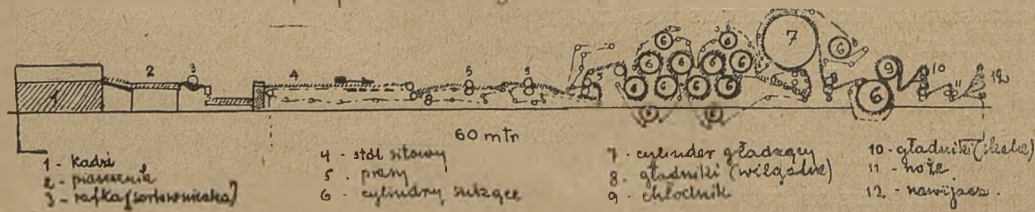 2 3 4 5 5 5 8 6 6 6 6 6 6 6 6 6 6 7 6 9 6 10 11 12
1
60 mtr
1 - kadzi
2 - piasecznik
3 - rafka (sortowniczka)
4 - stół sitowy
5 - prasy
6 - cylindry suszące
7 - cylinder gładzący
8 - gładniki (wilgotne)
9 - chłodnik
10 - gładniki
11 - noże
12 - nawijacz.